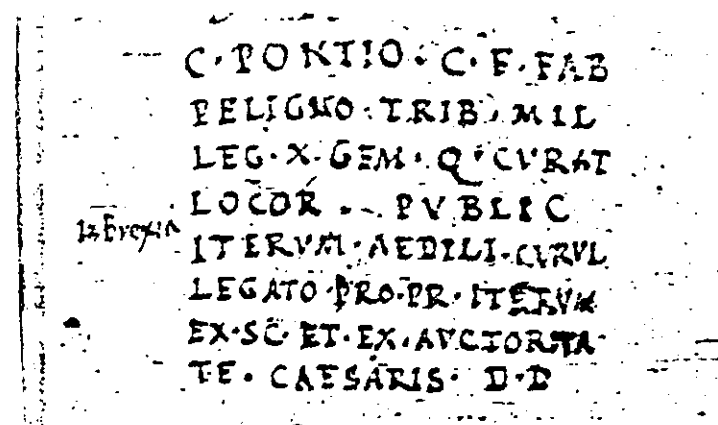 C · PONTIO · C · F · FAB
PELIGNO · TRIB · MIL
LEG · X · GEM · Q · CVRAT
LOCOR · PVBLIC
ITERVM · AEDILI · CVRVL
LEGATO · PRO · PR · ITERVM
EX · SC · ET · EX · AVCTORITA
TE · CAESARIS · D · D